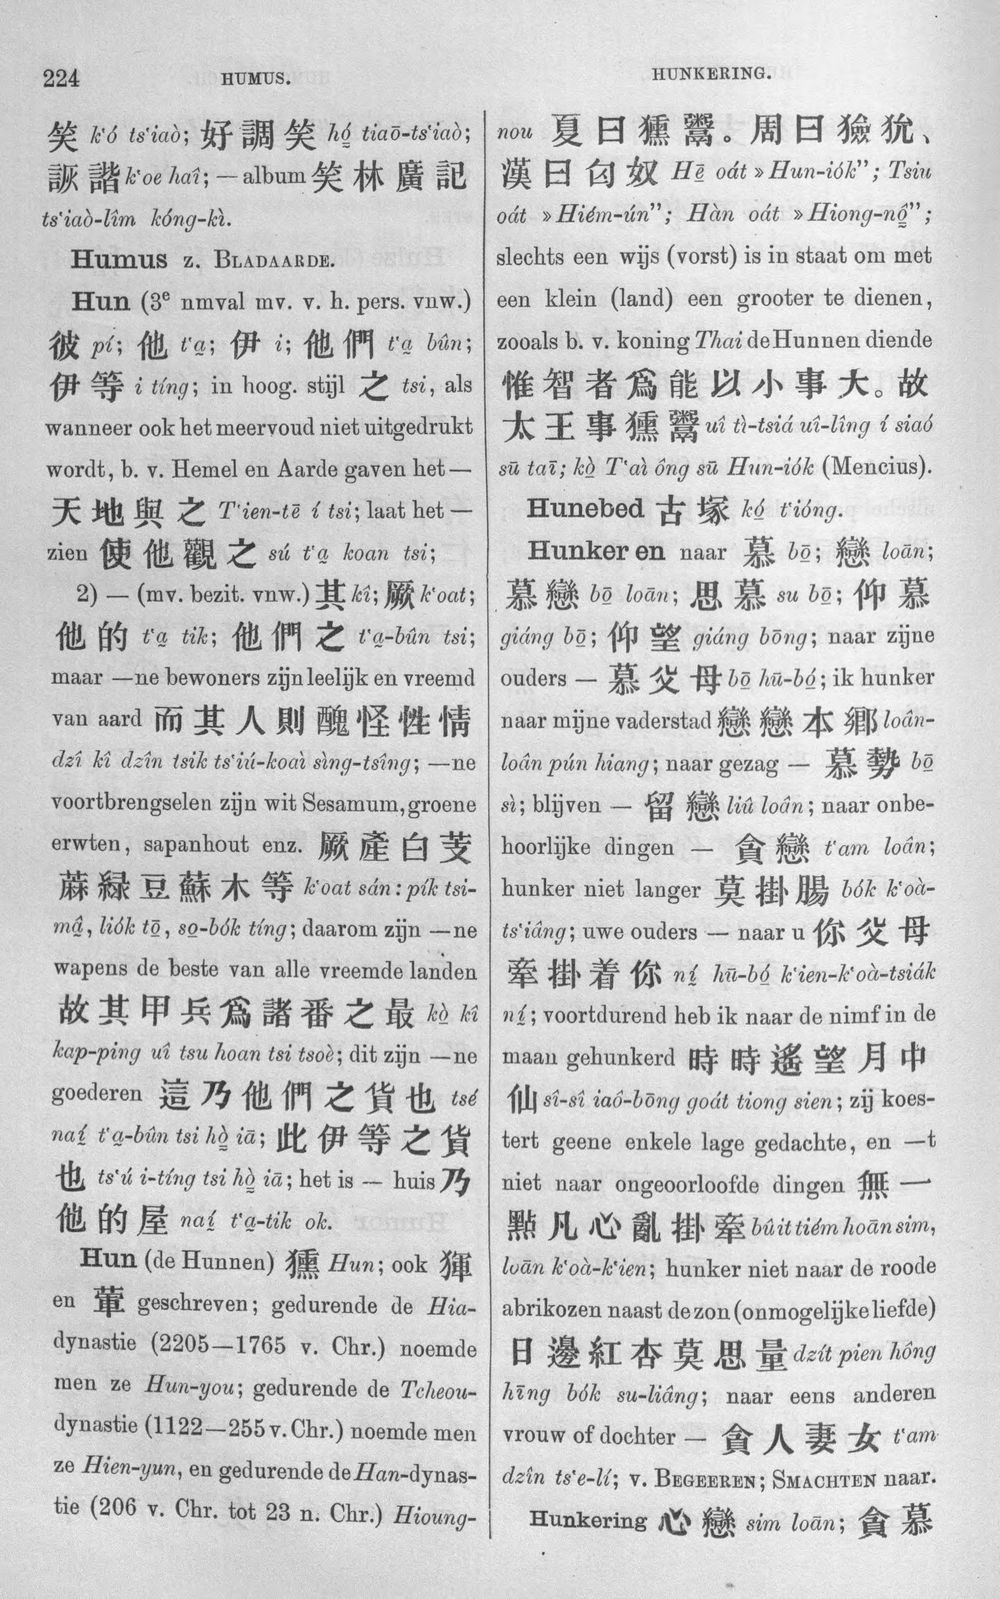 224
HUMUS.
HUNKERING.
笑 k'ó ts'iaò; 好調笑 hó̤ tiaō-ts'iaò;
詼諧 k'oe haî; — album 笑林廣記
ts'iaò-lîm kóng-kì.
Humus z. BLADAARDE.
Hun (3e nmval mv. v. h. pers. vnw.)
彼 pí; 他 t'a̤; 伊 i; 他們 t'a̤ bûn;
伊等 i tíng; in hoog. stijl 之 tsi, als
wanneer ook het meervoud niet uitgedrukt
wordt, b. v. Hemel en Aarde gaven het —
天地與之 T'ien-tē í tsi; laat het —
zien 使他觀之 sú t'a̤ koan tsi;
2) — (mv. bezit. vnw.) 其 kî; 厥 k'oat;
他的 t'a̤ tik; 他們之 t'a̤-bûn tsi;
maar —ne bewoners zijn leelijk en vreemd
van aard 而其人則醜怪性情
dzî kî dzîn tsik ts'iú-koaì sìng-tsîng; —ne
voortbrengselen zijn wit Sesamum, groene
erwten, sapanhout enz. 厥產白芰
蔴緑豆蘇木等 k'oat sán: pík tsi-
mâ̤, liók tō̤, so̤-bók tíng; daarom zijn —ne
wapens de beste van alle vreemde landen
故其甲兵爲諸番之最 kò̤ kî
kap-ping uî tsu hoan tsi tsoè; dit zijn —ne
goederen 這乃他們之貨也 tsé
naí̤ t'a̤-bûn tsi hò̤ iā; 此伊等之貨
也 ts'ú i-tíng tsi hò̤ iā; het is — huis 乃
他的屋 naí̤ t'a̤-tik ok.
Hun (de Hunnen) 獯 Hun; ook 獋
en 葷 geschreven; gedurende de Hia-
dynastie (2205—1765 v. Chr.) noemde
men ze Hun-you; gedurende de Tcheou-
dynastie (1122—255 v. Chr.) noemde men
ze Hien-yun, en gedurende de Han-dynas-
tie (206 v. Chr. tot 23 n. Chr.) Hioung-
nou 夏曰獯鬻。周曰獫狁、
漢曰匈奴 Hē̤ oát »Hun-iók"; Tsiu
oát »Hiém-ún"; Hàn oát »Hiong-nô̤";
slechts een wijs (vorst) is in staat om met
een klein (land) een grooter te dienen,
zooals b. v. koning Thai de Hunnen diende
惟智者爲能以小事大。故
太王事獯鬻 uî tì-tsiá uî-lîng í siaó
sū taī; kò̤ T'aì ông sū Hun-iók (Mencius).
Hunebed 古塚 kó̤ t'ióng.
Hunkeren naar 慕 bō̤; 戀 loān;
慕戀 bō̤ loān; 思慕 su bō̤; 仰慕
giáng bō̤; 仰望 giáng bōng; naar zijne
ouders — 慕父母 bō̤ hū-bó̤; ik hunker
naar mijne vaderstad 戀戀本鄉 loân-
loân pún hiang; naar gezag — 慕勢 bō̤
sì; blijven — 留戀 liû loân; naar onbe-
hoorlijke dingen — 貪戀 t'am loân;
hunker niet langer 莫掛腸 bók k'oà-
ts'iâng; uwe ouders — naar u 你父母
牽掛着你 ní̤ hū-bó̤ k'ien-k'oà-tsiák
ní̤; voortdurend heb ik naar de nimf in de
maan gehunkerd 時時遙望月中
仙 sî-sî iaô-bōng goát tiong sien; zij koes-
tert geene enkele lage gedachte, en —t
niet naar ongeoorloofde dingen 無一
點凡心亂掛牽 bû it tiém hoân sim,
loān k'oà-k'ien; hunker niet naar de roode
abrikozen naast de zon (onmogelijke liefde)
日邊紅杏莫思量 dzít pien hông
hīng bók su-liâng; naar eens anderen
vrouw of dochter — 貪人妻女 t'am
dzîn ts'e-lí; v. BEGEEREN; SMACHTEN naar.
Hunkering 心戀 sim loān; 貪慕